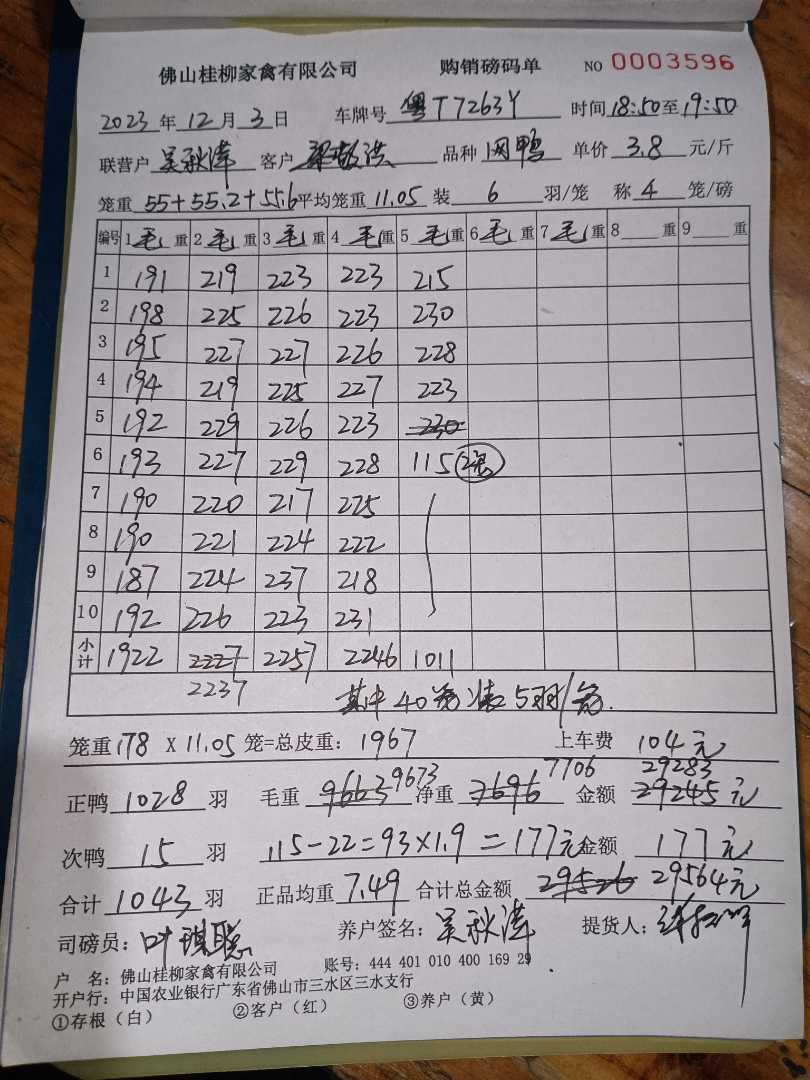 佛山桂柳家禽有限公司 购销磅码单 NO 0003596
2023年12月3日 车牌号 粤T7263Y 时间18:50至19:50
联营户 吴秋潭 客户 品种 肉鸭 单价 3.8 元/斤
笼重 55+55.2+55.6 平均笼重 11.05 装 6 羽/笼 称 4 笼/磅
编号 1毛重 2毛重 3毛重 4毛重 5毛重 6毛重 7毛重 8 重 9 重
1 191 219 223 223 215
2 198 225 226 223 230
3 195 227 227 226 228
4 194 219 225 227 223
5 192 229 226 223 230
6 193 227 229 228 115 2笼
7 190 220 217 225
8 190 221 224 222
9 187 224 237 218
10 192 226 223 231
小计 1922 2227 2257 2246 1011
2237 其中40笼装5羽/笼.
笼重178 X 11.05 笼=总皮重: 1967 上车费 104元
正鸭 1028 羽 毛重 9663 9673 净重 7696 7706 金额 29245元 29283
次鸭 15 羽 115-22=93×1.9=177元 金额 177元
合计 1043 羽 正品均重 7.49 合计总金额 29526 29564元
司磅员: 叶琪聪 养户签名: 吴秋潭 提货人:
户 名: 佛山桂柳家禽有限公司 账号: 444 401 010 400 169 29
开户行: 中国农业银行广东省佛山市三水区三水支行
①存根(白) ②客户(红) ③养户(黄)